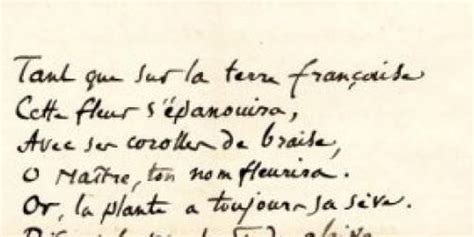 Tant que sur la terre françoise
Cette fleur s'épanouira,
Avec ses corolles de braise,
O Maître, ton nom fleurira.
Or, la plante a toujours sa sève.